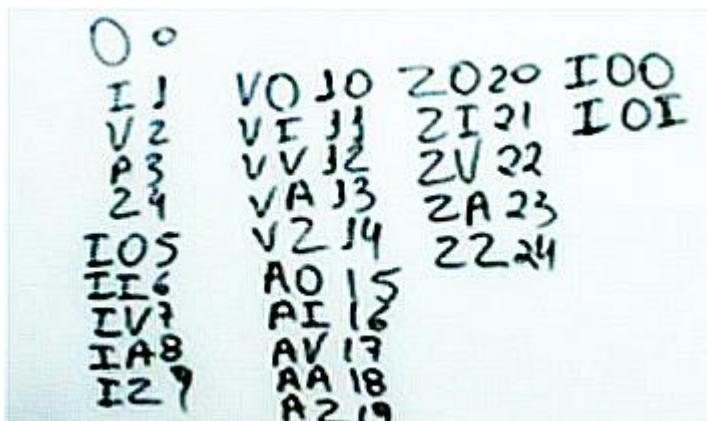 O 0
I 1
V 2
A 3
Z 4
IO 5
II 6
IV 7
IA 8
IZ 9
VO 10
VI 11
VV 12
VA 13
VZ 14
AO 15
AI 16
AV 17
AA 18
AZ 19
ZO 20
ZI 21
ZV 22
ZA 23
ZZ 24
IOO
IOI